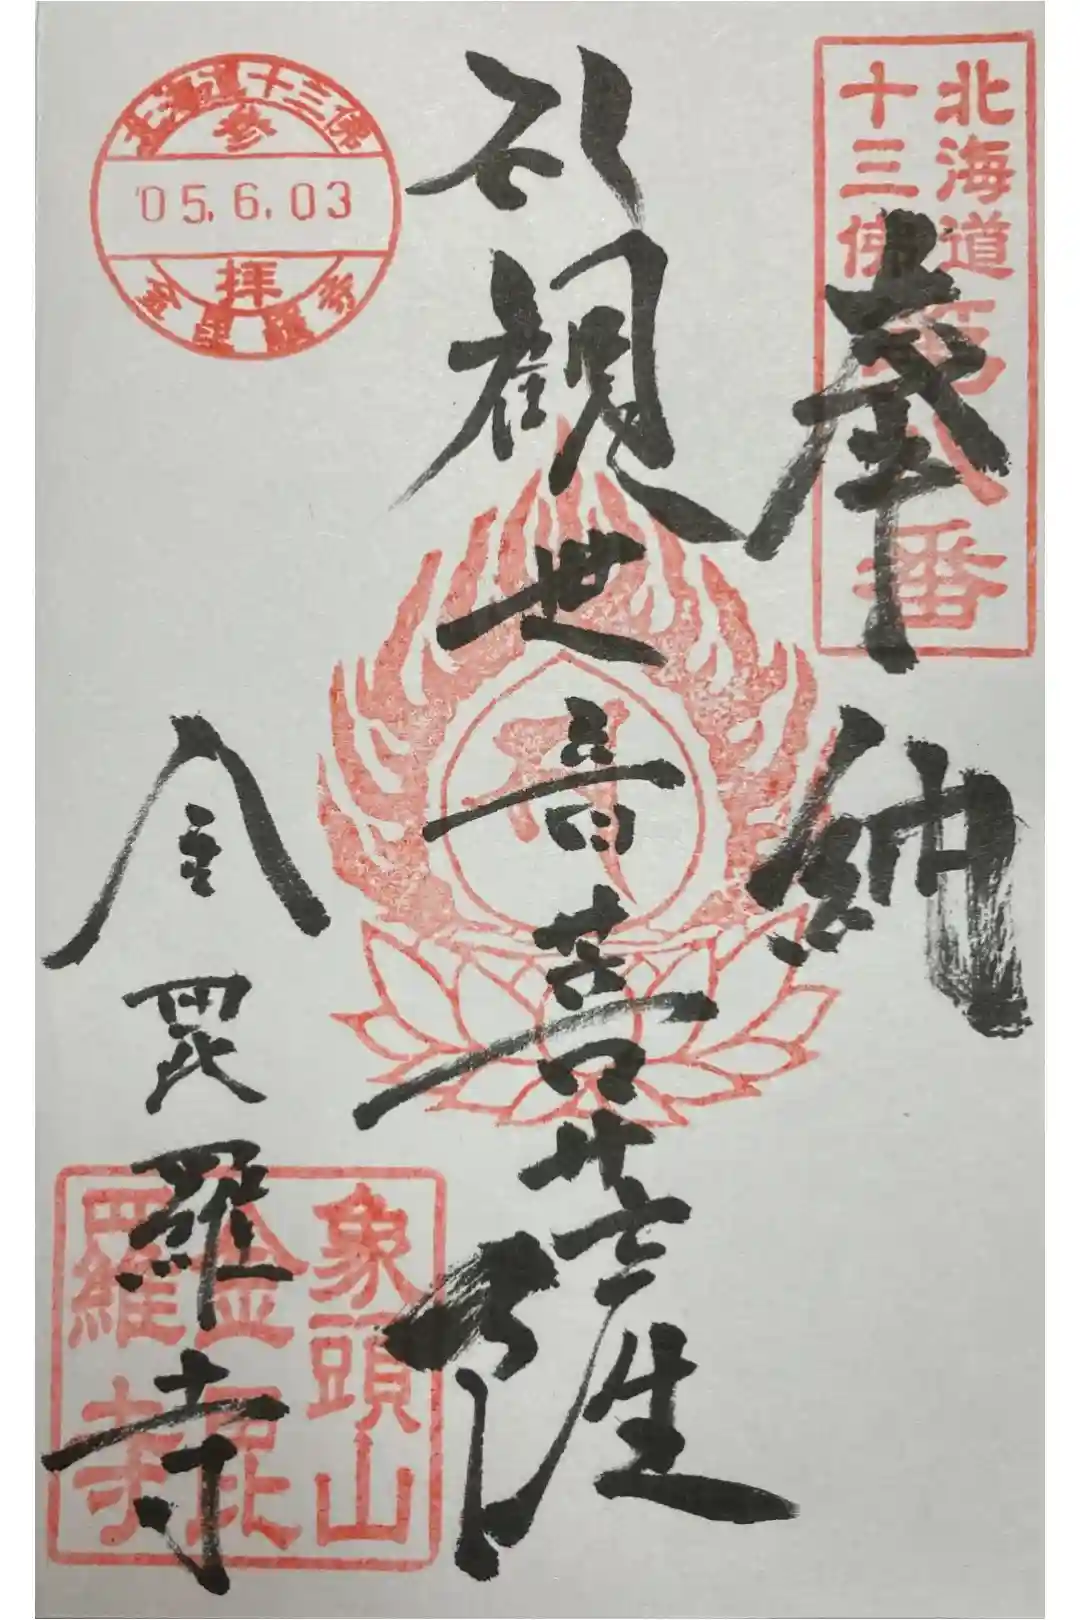 北海道
十三佛
第八番
奉納
観世音菩薩
金毘羅寺
北海道十三佛
参
'05.6.03
拝
金毘羅寺
象頭山
金毘
羅寺